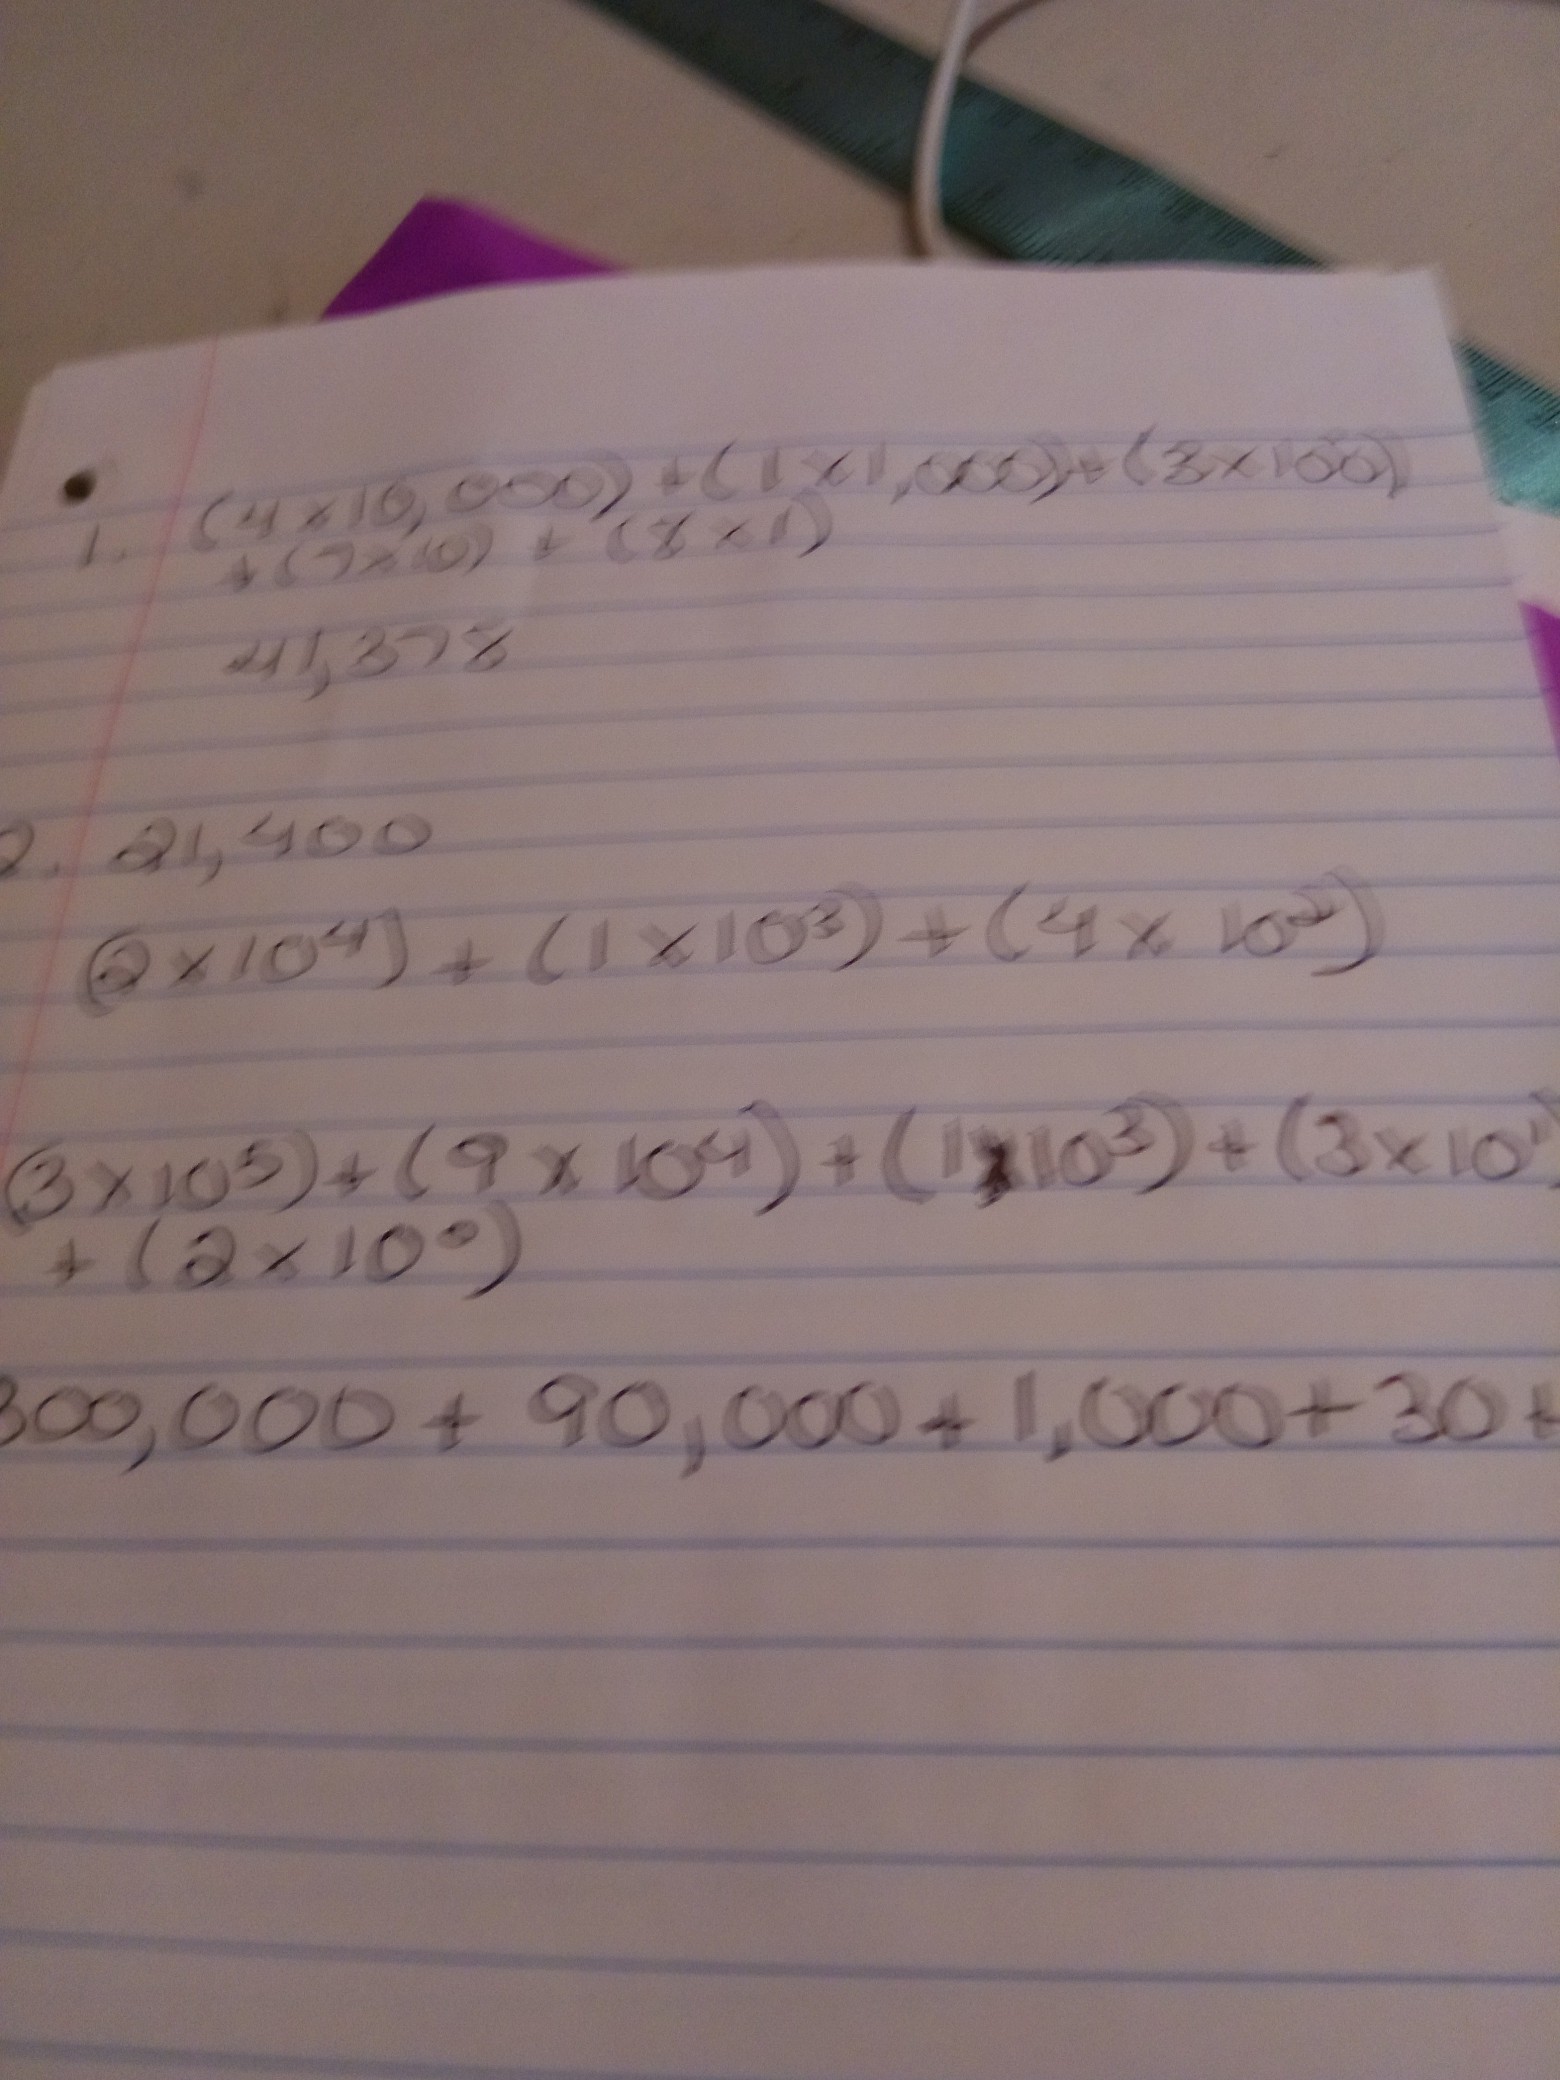 1. (4 x 10,000) + (1 x 1,000) + (3 x 100)
+ (7 x 10) + (8 x 1)
41,378
2. 21,400
(2 x 10⁴) + (1 x 10³) + (4 x 10²)
(3 x 10⁵) + (9 x 10⁴) + (1 x 10³) + (3 x 10¹)
+ (2 x 10⁰)
300,000 + 90,000 + 1,000 + 30 +